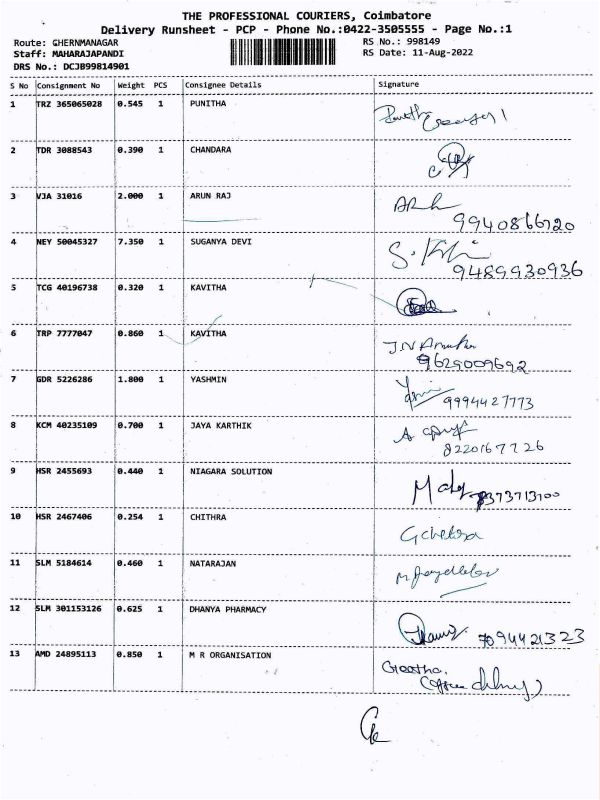 THE PROFESSIONAL COURIERS, Coimbatore
Delivery Runsheet - PCP - Phone No.:0422-3505555 - Page No.:1
Route: GHERNMANAGAR RS No.: 998149
Staff: MAHARAJAPANDI RS Date: 11-Aug-2022
DRS No.: DCJB99814901
S No Consignment No Weight PCS Consignee Details Signature
1 TRZ 365065028 0.545 1 PUNITHA
2 TDR 3088543 0.390 1 CHANDARA
3 VJA 31016 2.000 1 ARUN RAJ
9940866720
4 NEY 50045327 7.350 1 SUGANYA DEVI
9489930936
5 TCG 40196738 0.320 1 KAVITHA
6 TRP 7777047 0.860 1 KAVITHA
9629009692
7 GDR 5226286 1.800 1 YASHMIN
9994427773
8 KCM 40235109 0.700 1 JAYA KARTHIK
8220167726
9 HSR 2455693 0.440 1 NIAGARA SOLUTION
10 HSR 2467406 0.254 1 CHITHRA
11 SLM 5184614 0.460 1 NATARAJAN
12 SLM 301153126 0.625 1 DHANYA PHARMACY
7094421323
13 AMD 24895113 0.850 1 M R ORGANISATION
Geetha